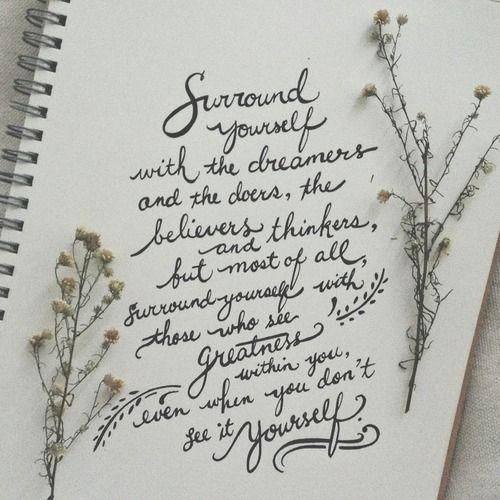 Surround
yourself
with the dreamers
and the doers, the
believers and thinkers,
but most of all,
surround yourself with,
those who see
greatness
within you,
even when you don't
see it yourself.